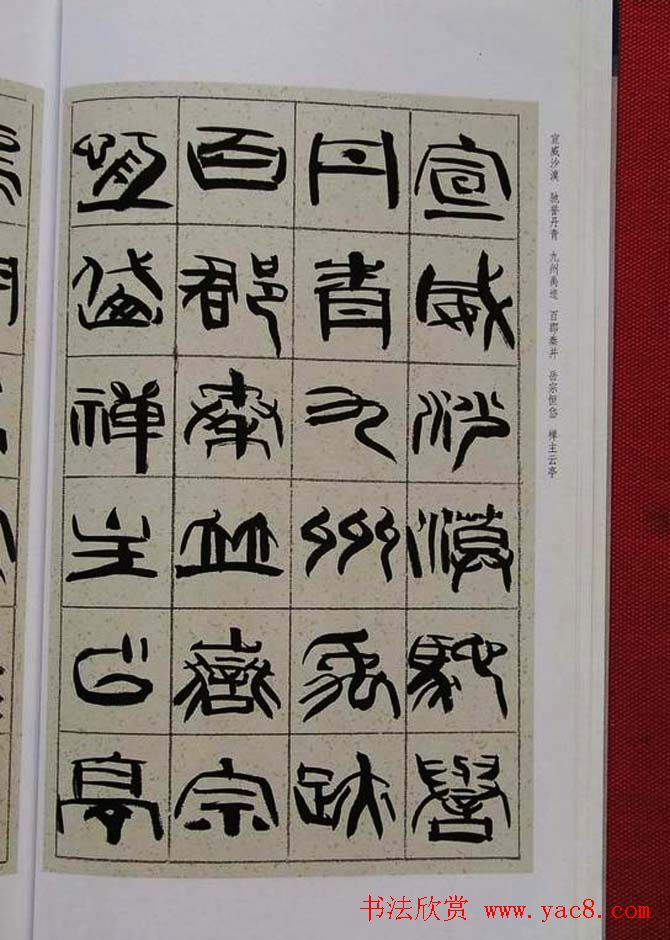 宣威沙漠 驰誉丹青 九州禹迹 百郡秦并 岳宗恒岱 禅主云亭
宣威沙漠馳譽
丹青九州禹跡
百郡秦並嶽宗
恆岱禅主云亭
书法欣赏 www.yac8.com